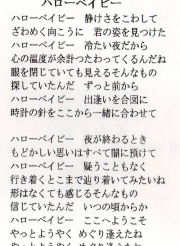 ハローベイビー
ハローベイビー　静けさをこわして
ざわめく向こうに　君の姿を見つけた
ハローベイビー　冷たい夜だから
心の温度が余計つたわってくるんだね
眼を閉じていても見えるそんなもの
探していたんだ　ずっと前から
ハローベイビー　出逢いを合図に
時計の針をここから一緒に合わせて

ハローベイビー　夜が終わるとき
もどかしい思いはすべて闇に預けて
ハローベイビー　疑うこともなく
行き着くとこまで辿り着いてみたいね
形はなくても感じるそんなもの
信じていたんだ　いつの頃からか
ハローベイビー　ここへようこそ
やっとようやく めぐり逢えたね